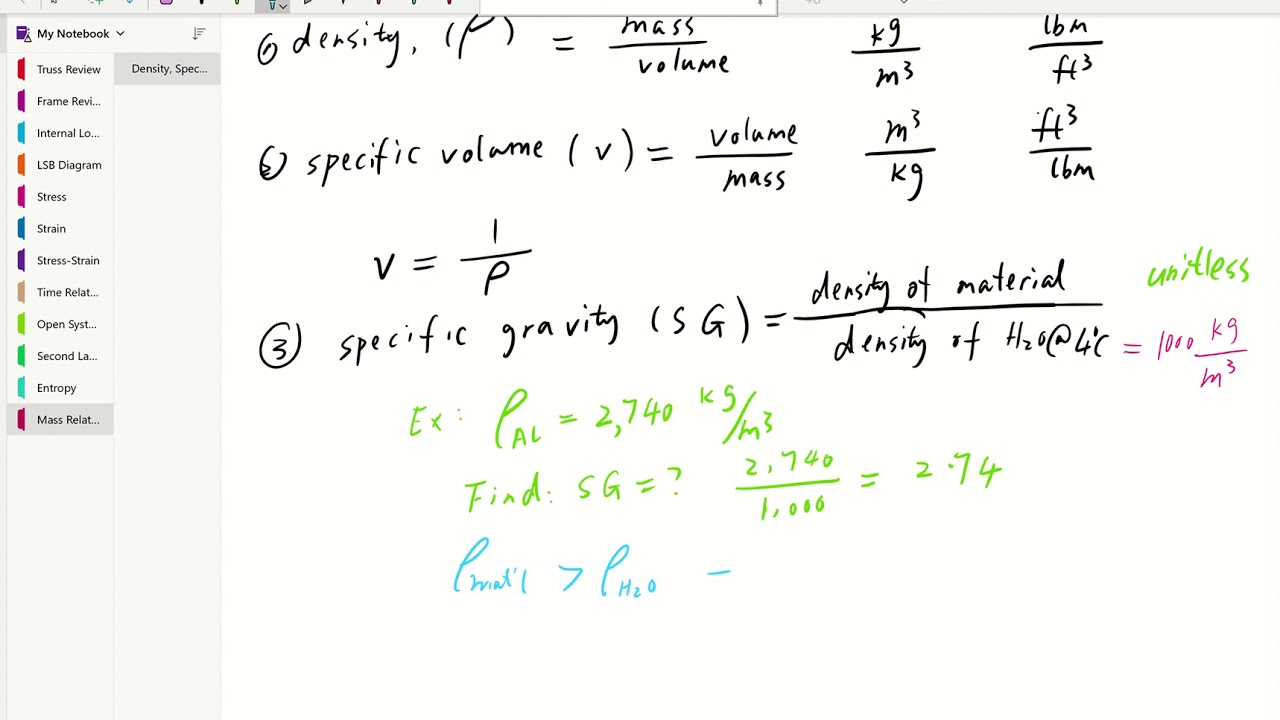 My Notebook
Truss Review
Frame Revi...
Internal Lo...
LSB Diagram
Stress
Strain
Stress-Strain
Time Relat...
Open Syst...
Second La...
Entropy
Mass Relat...
Density, Spec...
① density, (ρ) = mass/volume kg/m³ lbm/ft³
② specific volume (v) = volume/mass m³/kg ft³/lbm
v = 1/ρ
③ specific gravity (SG) = density of material/density of H₂O@4°C = 1000 kg/m³ unitless
Ex: ρ_AL = 2,740 kg/m³
Find: SG = ? 2,740/1,000 = 2.74
ρ_mat'l > ρ_H₂O −